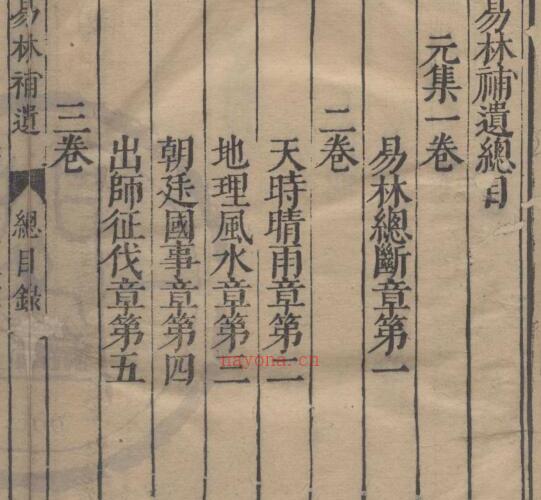 易林補遺總目
元集一卷
易林總斷章第一
二卷
天時晴雨章第二
地理風水章第三
朝廷國事章第四
出師征伐章第五
三卷
易林補遺 總目錄
nayona.cn